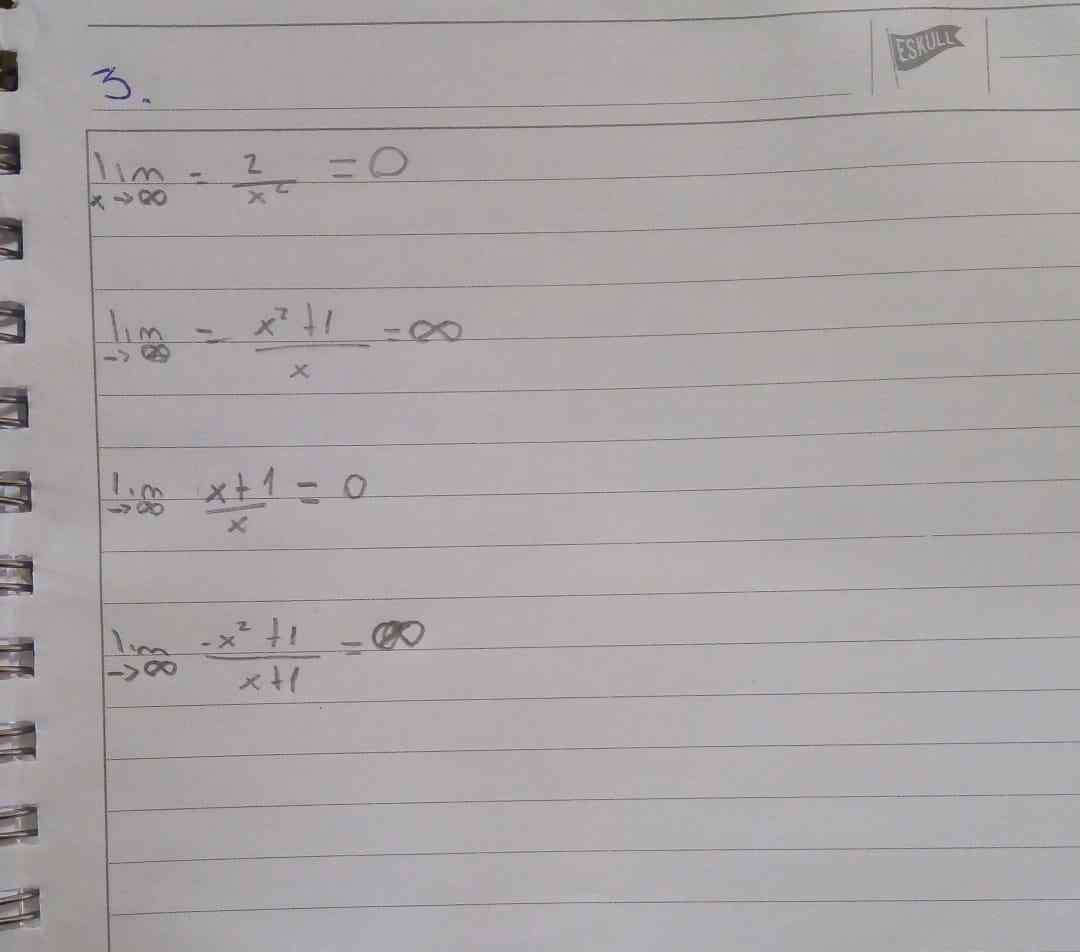 ESKULL
3.
lim x→∞ - 2/x² = 0
lim →∞ = x² +1/x = ∞
lim →∞ x+1/x = 0
lim →∞ -x² +1/x+1 = ∞